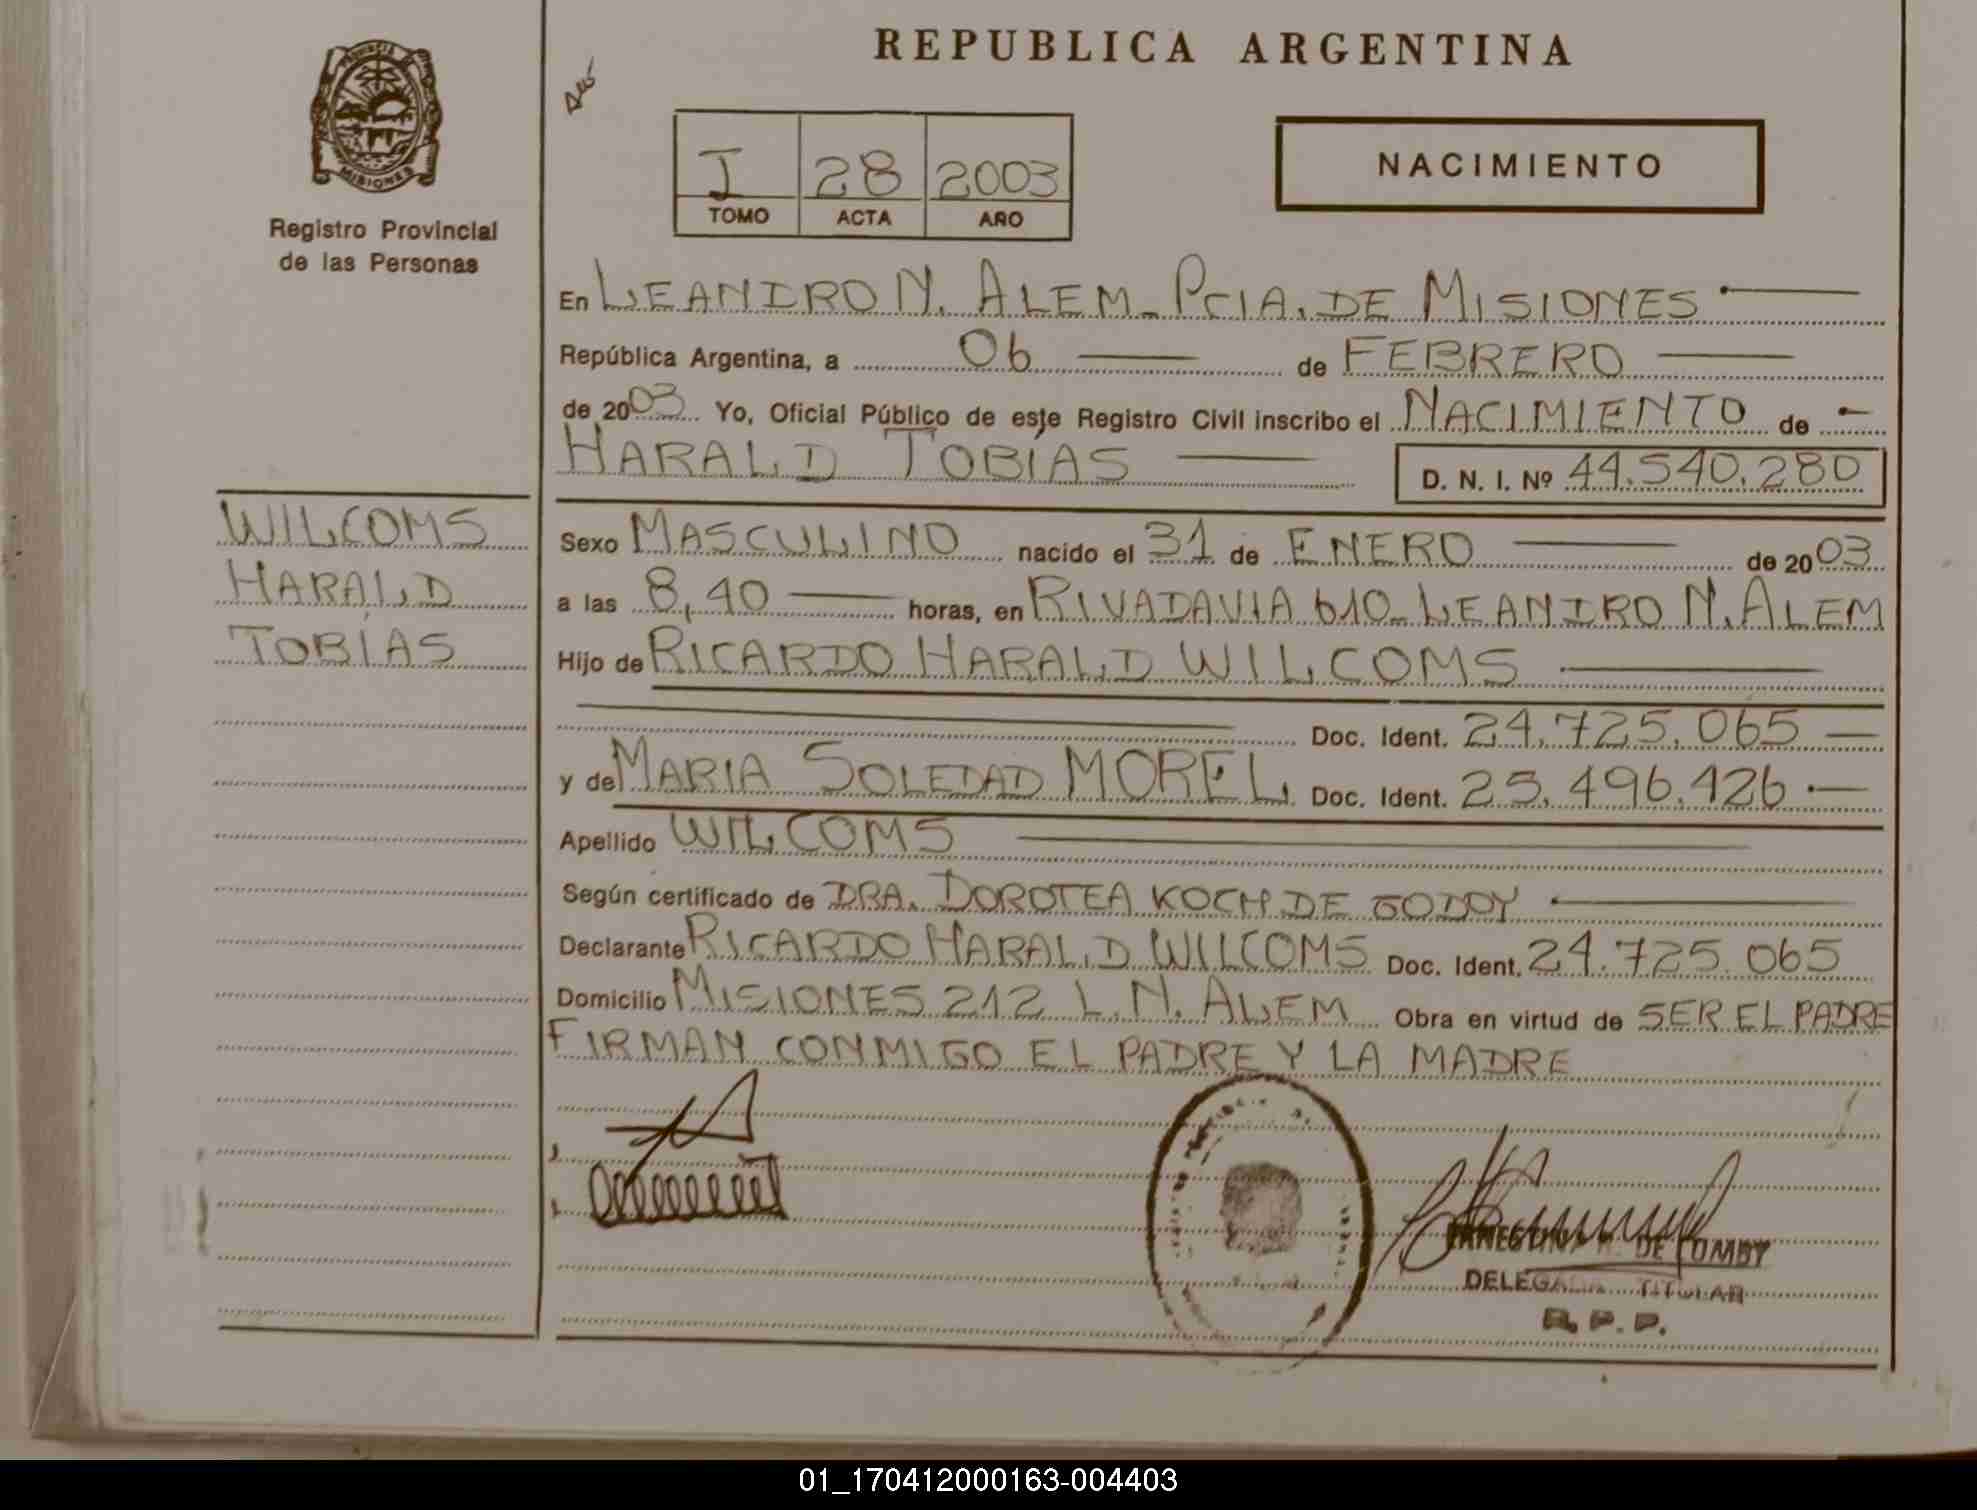 REPUBLICA ARGENTINA
MISIONES
Registro Provincial
de las Personas
I 28 2003
TOMO ACTA AÑO
NACIMIENTO
En LEANDRO N. ALEM - PCIA. DE MISIONES
República Argentina, a 06 de FEBRERO
de 2003 Yo, Oficial Público de este Registro Civil inscribo el NACIMIENTO de
HARALD TOBÍAS D. N. I. Nº 44.540.280
WILCOMS
HARALD
TOBÍAS
Sexo MASCULINO nacido el 31 de ENERO de 2003
a las 8,40 horas, en RIVADAVIA 610 - LEANDRO N. ALEM
Hijo de RICARDO HARALD WILCOMS
Doc. Ident. 24.725.065
y de MARIA SOLEDAD MOREL Doc. Ident. 25.496.426
Apellido WILCOMS
Según certificado de DRA. DOROTEA KOCH DE GODOY
Declarante RICARDO HARALD WILCOMS Doc. Ident. 24.725.065
Domicilio MISIONES 212 L. N. ALEM Obra en virtud de SER EL PADRE
FIRMAN CONMIGO EL PADRE Y LA MADRE
DE
DELEGADA TITULAR
R. P. P.
01_170412000163-004403